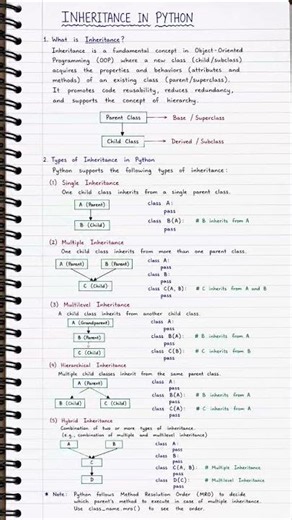 INHERITANCE IN PYTHON
1. What is Inheritance?
Inheritance is a fundamental concept in Object-Oriented
Programming (OOP) where a new class (child/subclass)
acquires the properties and behaviors (attributes and
methods) of an existing class (parent/superclass).
It promotes code reusability, reduces redundancy,
and supports the concept of hierarchy.
Parent Class → Base / Superclass
Child Class → Derived / Subclass
2. Types of Inheritance in Python
Python supports the following types of inheritance:
(1) Single Inheritance
One child class inherits from a single parent class.
A (Parent)
B (Child)
class A:
pass
class B(A): # B inherits from A
pass
(2) Multiple Inheritance
One child class inherits from more than one parent class.
A (Parent) B (Parent)
C (Child)
class A:
pass
class B:
pass
class C(A, B): # C inherits from A and B
pass
(3) Multilevel Inheritance
A child class inherits from another child class.
A (Grandparent)
B (Parent)
C (Child)
class A:
pass
class B(A): # B inherits from A
pass
class C(B): # C inherits from B
pass
(4) Hierarchical Inheritance
Multiple child classes inherit from the same parent class.
A (Parent)
B (Child) C (Child)
class A:
pass
class B(A): # B inherits from A
pass
class C(A): # C inherits from A
pass
(5) Hybrid Inheritance
Combination of two or more types of inheritance.
(e.g., combination of multiple and multilevel inheritance)
A B
C
D
class A:
pass
class B:
pass
class C(A, B): # Multiple Inheritance
pass
class D(C): # Multilevel Inheritance
pass
* Note: Python follows Method Resolution Order (MRO) to decide
which parent's method to execute in case of multiple inheritance.
Use class_name.mro() to see the order.